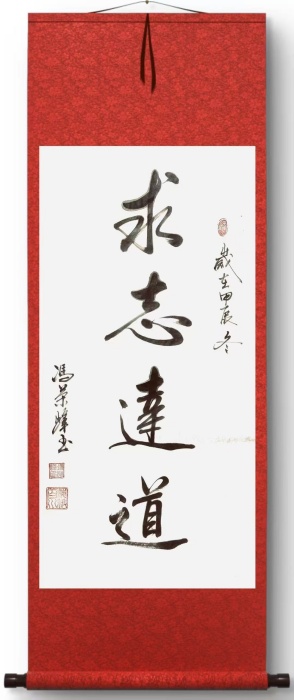 歲在甲辰冬
求志達道
馮榮峰書